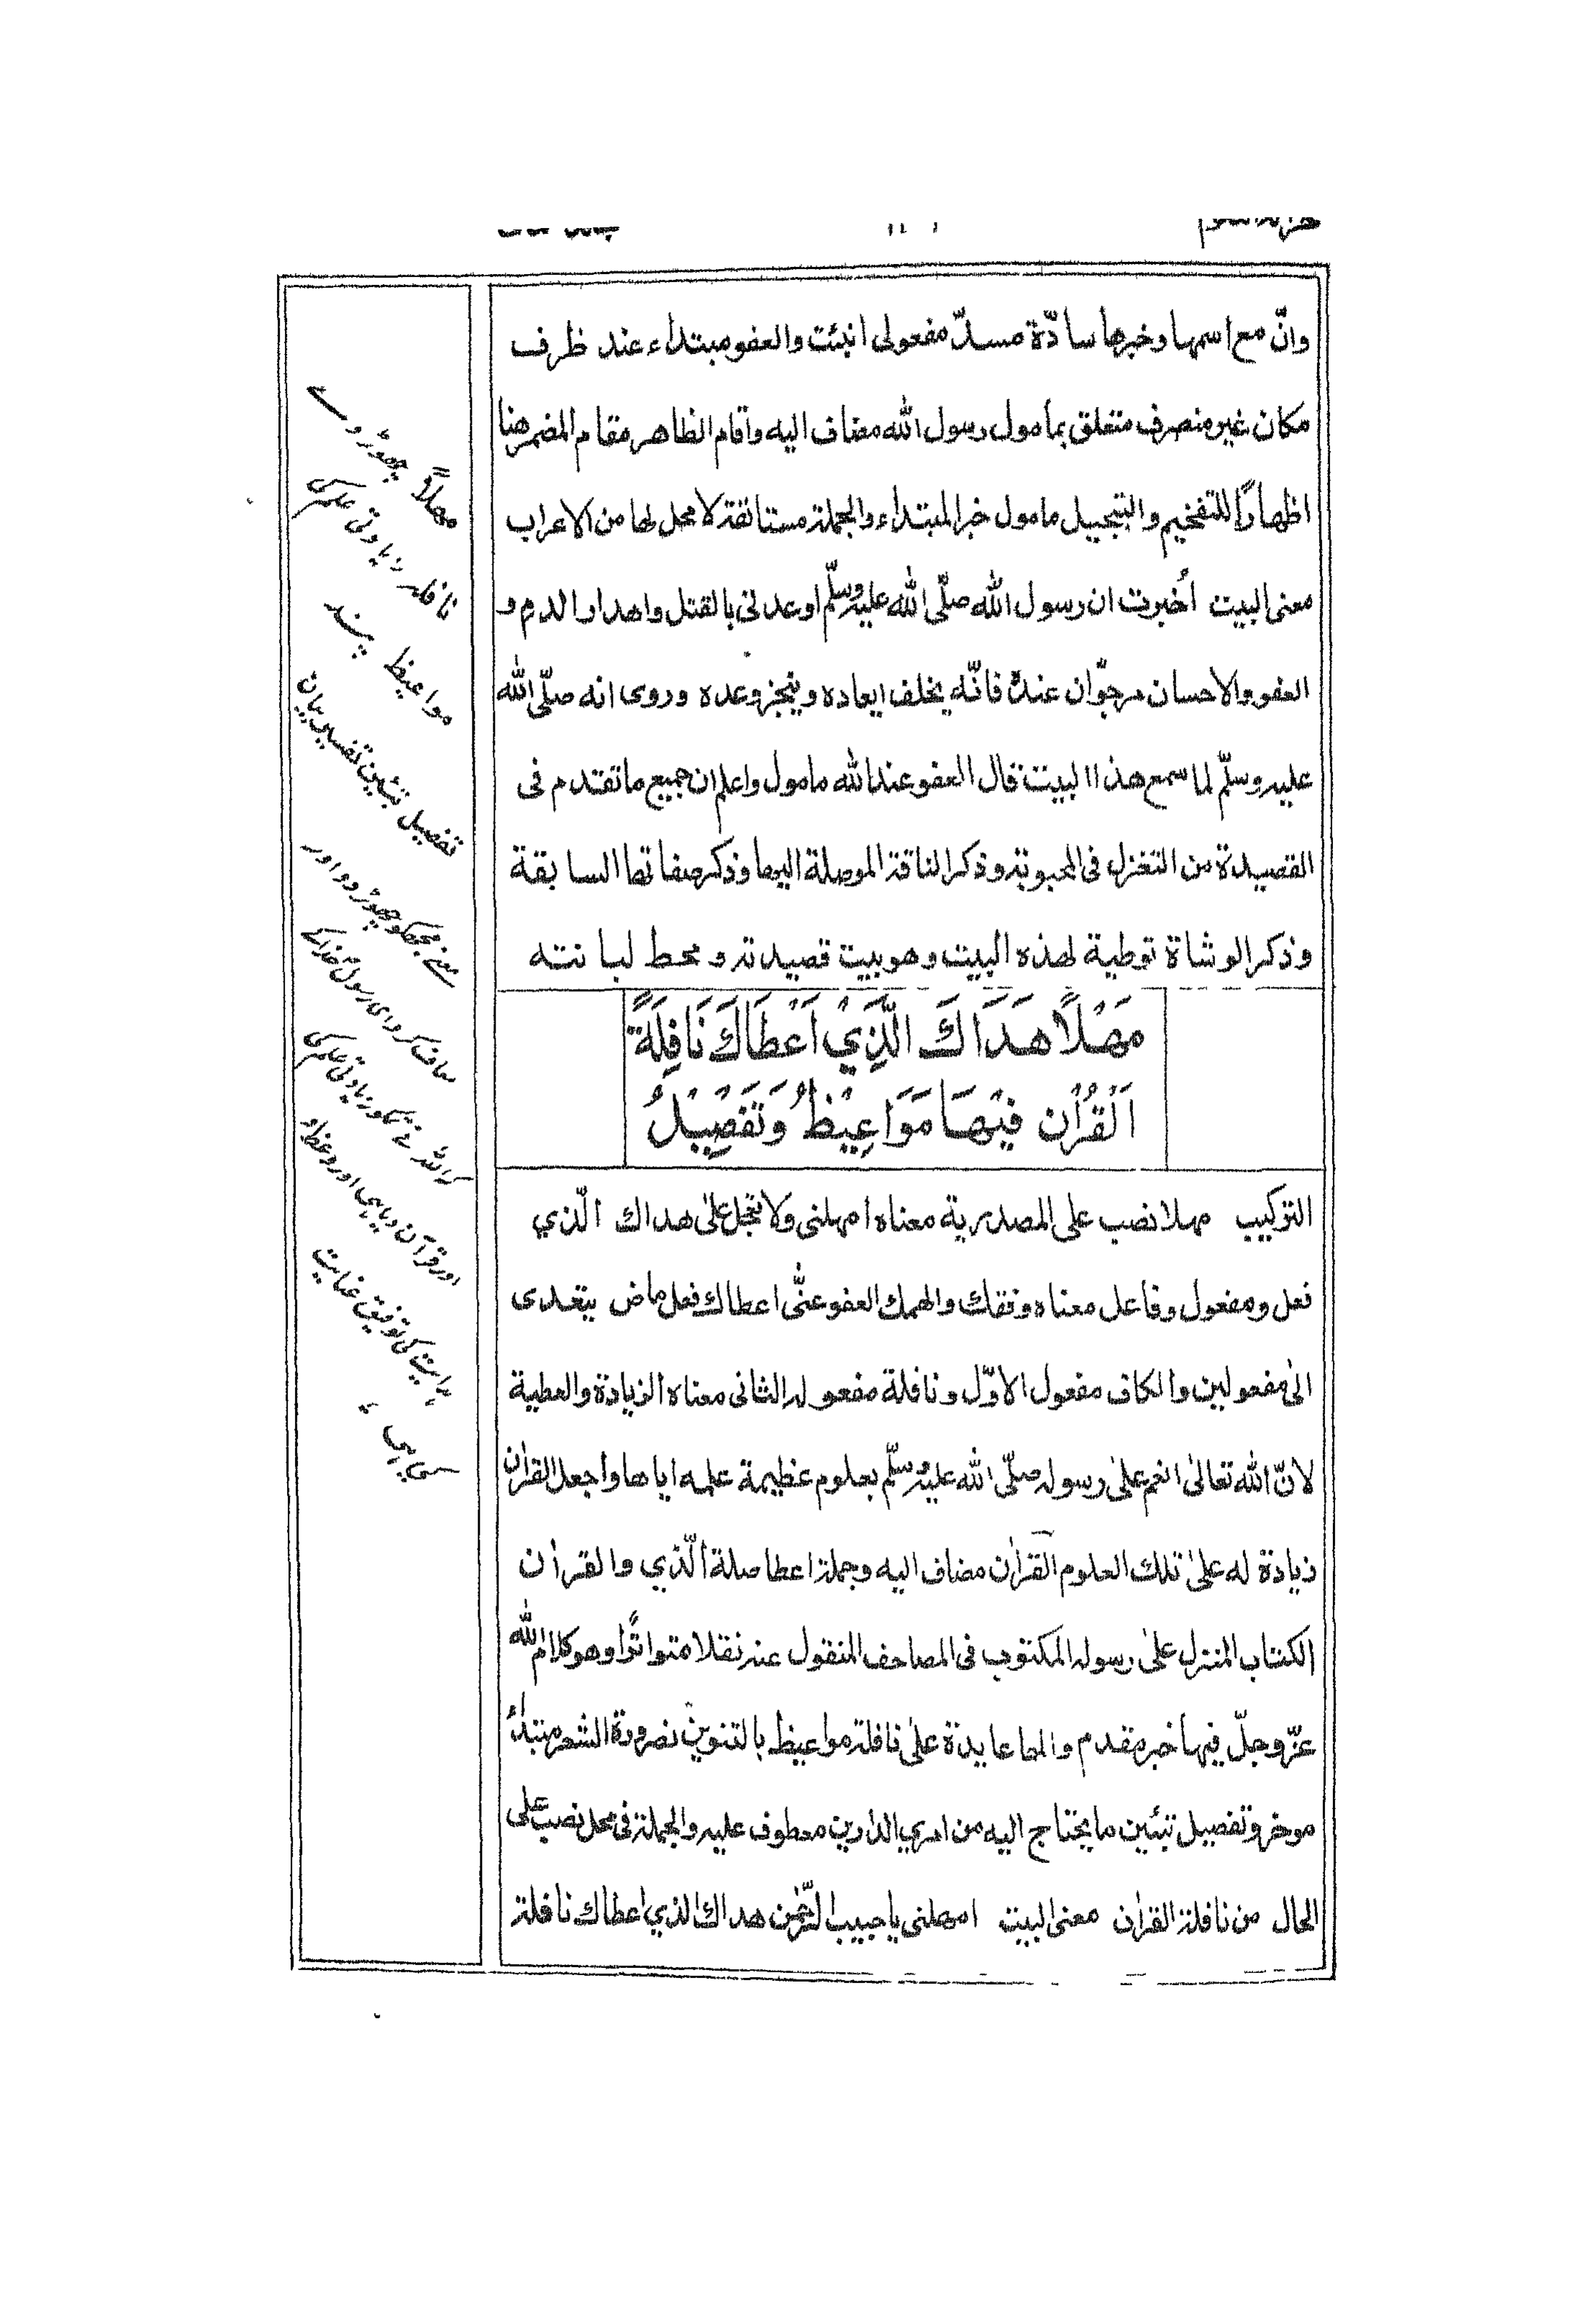 وانّ مع اسمها وخبرها سادّة مسدّ مفعولى انبئت والعفو مبتداء عند ظرف
مكان غير منصرف متعلق بمأمول رسول الله مضاف اليه واقام الظاهر مقام المضمر هنا
اظهارًا للتفخيم والتبجيل مامول خبر المبتداء والجملة مستانفة لا محل لها من الاعراب
معنى البيت أخبرت ان رسول الله صلّى الله عليه وسلّم اوعدنى بالقتل واهدار الدم و
العفو والاحسان مرجوّان عنده فانّه يخلف ايعاده وينجز وعده وروى انه صلّى الله
عليه وسلّم لما سمع هذا البيت قال العفو عند الله مامول واعلم ان جميع ما تقدم فى
القصيدة من التغزل فى المحبوبة وذكر الناقة الموصلة اليها وذكر صفاتها السابقة
وذكر الوشاة توطية لهذه البيت وهو بيت قصيدته و محط لبانته
مَهْلًا هَدَاكَ الَّذِيْ اَعْطَاكَ نَافِلَةً
اَلْقُرْاٰنِ فِيْهَا مَوَاعِيْظٌ وَتَفْصِيْلُ
التركيب مهلا نصب على المصدرية معناه امهلنى ولا تعجل علىّ هداك الّذي
فعل ومفعول وفاعل معناه وفقك والهمك العفو عنّى اعطاك فعل ماض يتعدى
الى مفعولين والكاف مفعول الاوّل ونافلة مفعوله الثانى معناه الزيادة والعطية
لانّ الله تعالىٰ انعم علىٰ رسوله صلّى الله عليه وسلّم بعلوم عظيمة علمه اياها واجعل القراٰن
زيادة له علىٰ تلك العلوم القراٰن مضاف اليه وجملة اعطا صلة الّذي والقراٰن
الكتاب المنزل علىٰ رسوله المكتوب فى المصاحف المنقول عنه نقلا متواترًا وهو كلام الله
عزّ وجلّ فيها خبر مقدم والها عايدة علىٰ نافلة مواعيظ بالتنوين لضرورة الشعر مبتداء
موخر وتفصيل تبئين ما يحتاج اليه من امري الدارين معطوف عليه والجملة فى محل نصب على
الحال من نافلة القراٰن معنى البيت امهلنى يا حبيب الرّحمٰن هداك الذي اعطاك نافلة
مهلاً چھوڑ دے
نافلہ زیادتی علم کی
مواعیظ پند
تفصیل تبئین تفسیر بیان
یعنے مجھکو چھوڑ دو اور
معاف کرو ای رسول خدا کے
کہ اللہ نے تمکو زیادتی علم کی
اور قرآن دیا ہی اور وعظ اور
ہدایت کی توفیق عنایت
کی ہی